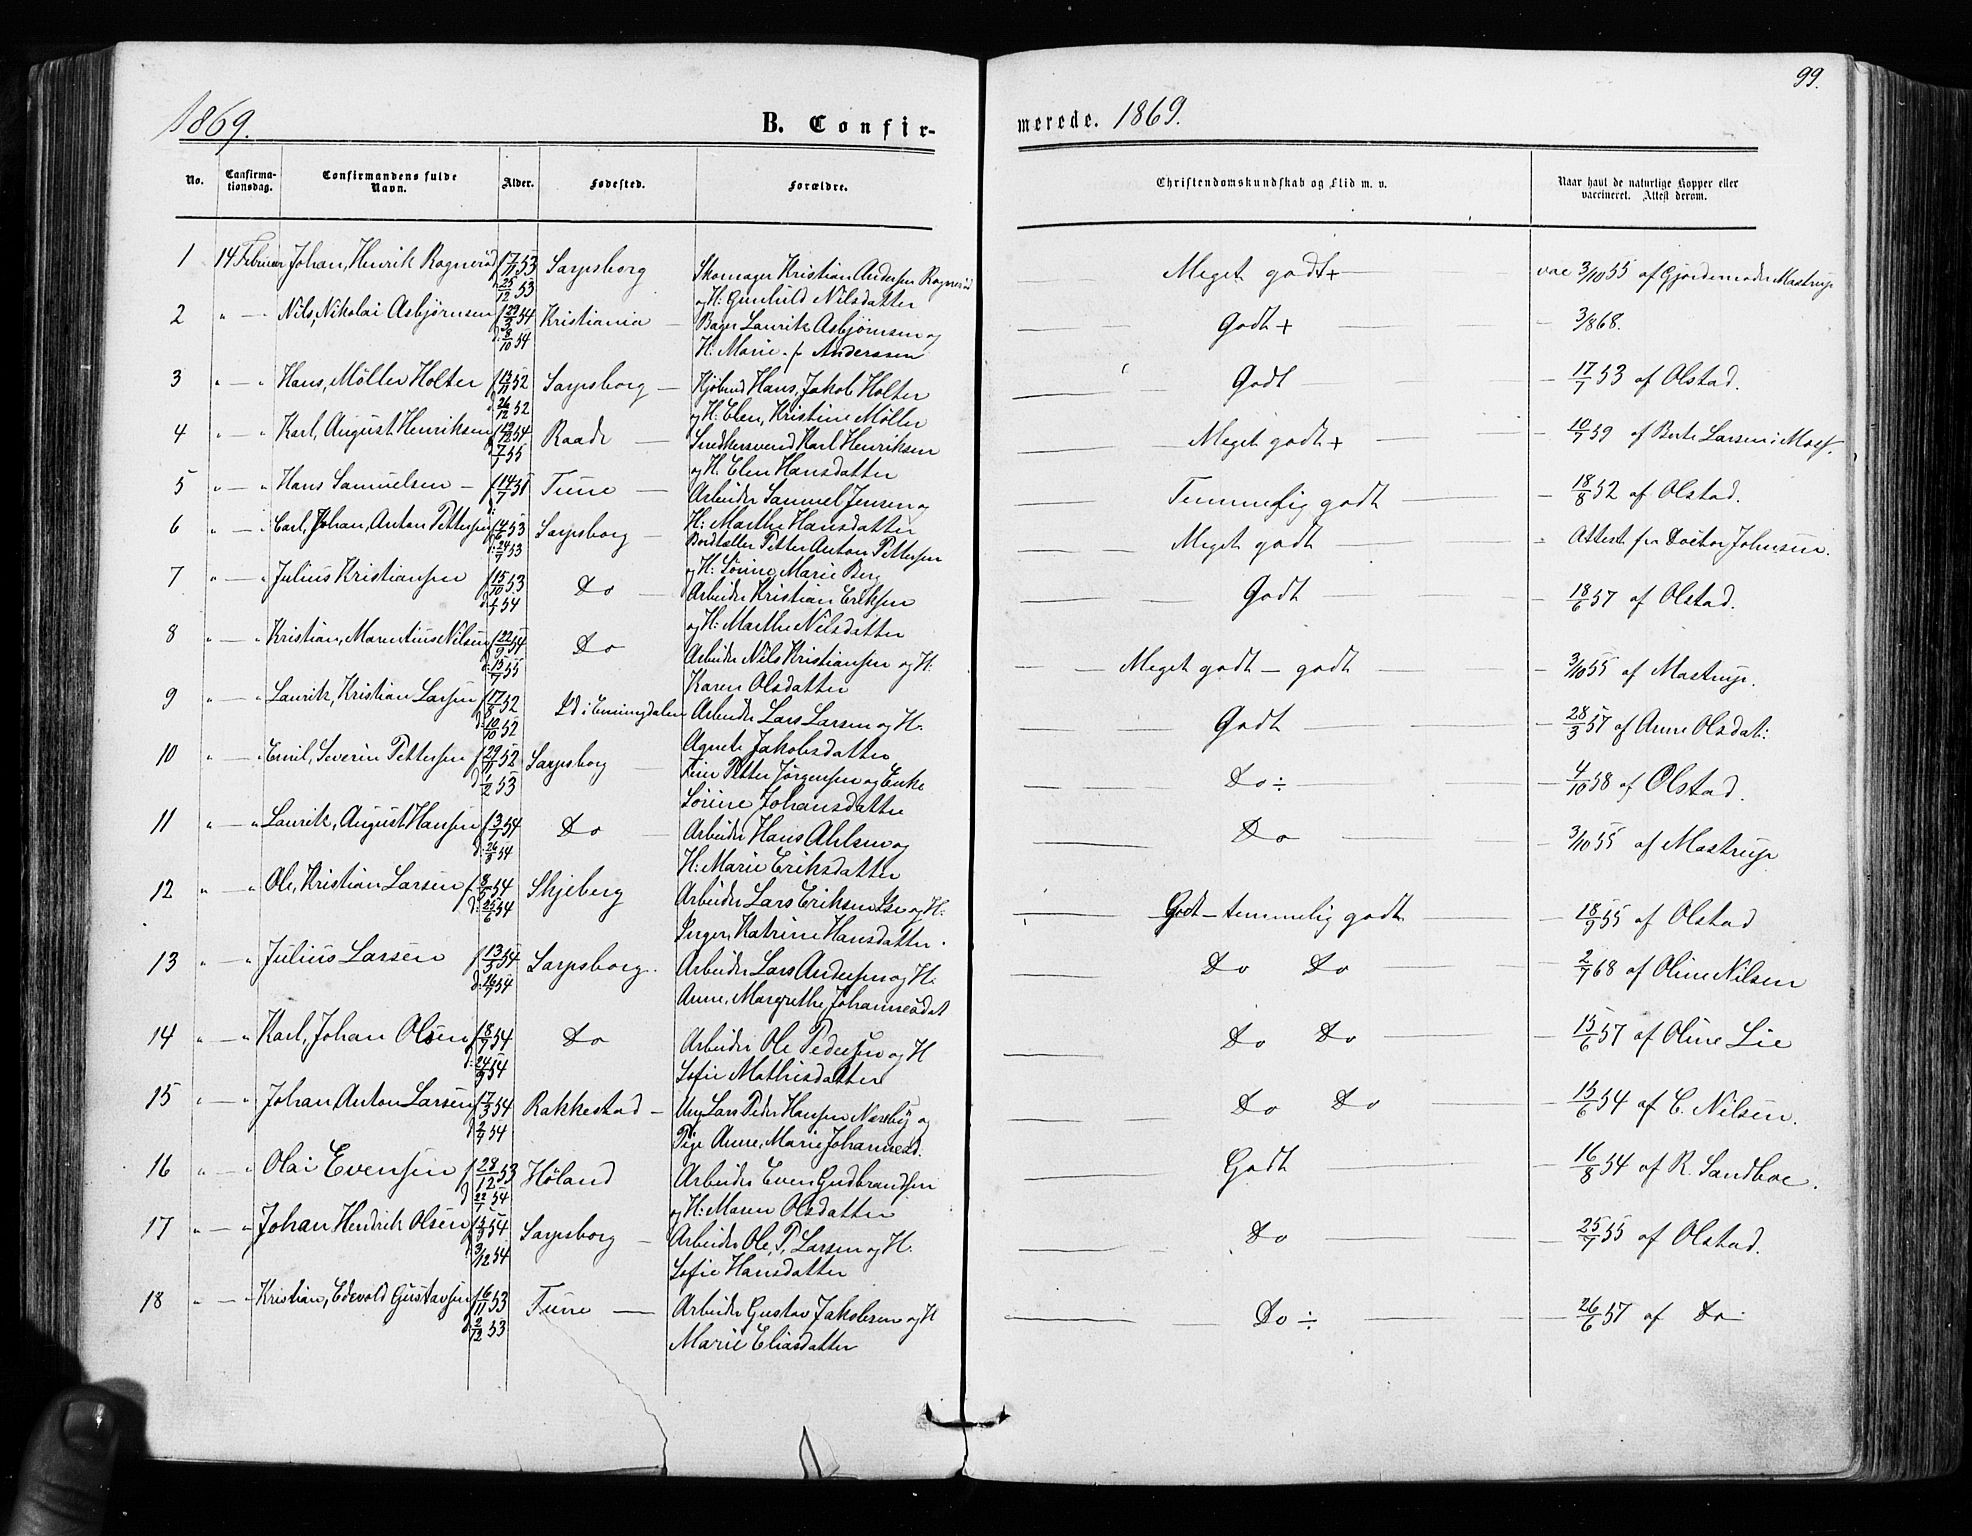 99.
1869. B. Confir-
merede. 1869.
No. Confirma-tionsdag. Confirmandens fulde Navn. Alder. Fødested. Forældre. Christendomskundskab og Flid m. v. Naar havt de naturlige Kopper eller vaccineret. Attest derom.
1 14 Februar Johan, Henrik Rognerød f 17/11 53 Sarpsborg Skomager Kristian Andersen Rognerød Meget godt + vac 3/10 55 af Gjordemoder Mastrup
d. 25/12 53 og H: Gunhild Nilsdatter
2 " — " Nils, Nikolai Asbjørnsen f 29/3 54 Kristiania — Bager Laurik Asbjørnsen og Godt + — 3/8 68.
d. 8/10 54 H. Marie f. Anderssen
3 " — " Hans, Møller Holter f 13/11 52 Sarpsborg — Kjøbmd Hans, Jakob Holter Godt — 17/7 53 af Olstad.
d. 26/12 52 og H: Elen, Kristine Møller
4 " — " Karl, August Henriksen f 19/12 54 Raade — Snedkersvend Karl Henriksen Meget godt + — 10/7 59 af Berte Larsen i Moss.
d. 7/7 55 og H. Elen Hansdatter
5 " — " Hans Samuelsen — f 14/7 51 Tune — Arbeider Samuel Jensen og Temmelig godt — 18/8 52 af Olstad.
H: Marthe Hansdatter
6 " — " Carl, Johan, Anton Pettersen f 14/6 53 Sarpsborg — Bordtæller Petter Anton Pettersen Meget godt " Attest fra Doctor Johnsen.
d. 24/7 53 og H. Sørine, Marie Berg
7 " — " Julius Kristiansen f 15/10 53 Do — Arbeider Kristian Eriksen Godt — 18/6 57 af Olstad.
d. 1/1 54 og H: Marthe Nilsdatter
8 " — " Kristian, Marentius Nilsen f 22/9 54 Do Arbeider Nils Kristiansen og H: Meget godt — godt — 3/10 55 af Mastrup.
d. 15/7 55 Karen Olsdatter
9 " — " Laurik, Kristian Larsen f 17/8 52 Id i Enningdalen Arbeider Lars Larsen og H. Godt — 28/3 57 af Anne Olsdat:
d. 10/10 52 Agnete Jakobsdatter
10 " — " Emil, Severin Pettersen f 29/11 52 Sarpsborg — Petter Jørgensen og Enke Do ÷ — 4/10 58 af Olstad.
d. 1/2 53 Sørine Johansdatter
11 " — " Laurik, August Hansen f 13/7 54 Do — Arbeider Hans Ahlsen og Do — 3/10 55 af Mastrup
d. 26/8 54 H: Marie Eriksdatter
12 " — " Ole, Kristian Larsen f. 8/5 54 Skjeberg Arbeider Lars Eriksen og H: Godt — temmelig godt — 18/9 55 af Olstad
d. 25/6 54 Inger, Katrine Hansdatter.
13 " — " Julius Larsen f 13/5 54 Sarpsborg. Arbeider Lars Andersen og H. Do Do — 2/7 68 af Oline Nilsen
d. 16/7 54 Anne, Margrethe Johannesdat
14 " — " Karl, Johan Olsen f 18/7 54 Do Arbeider Ole Pedersen og H Do Do — 15/6 57 af Oline Lie
d. 24/9 54 Sofie Mathisdatter
15 " — " Johan Anton Larsen f 17/3 54 Rakkestad — Ung Lars Peder Hansen Næsby og Do Do — 15/6 54 af C. Nilsen.
d. 2/7 54 Pige Anne, Marie Johannesd.
16 " — " Olai Evensen f 28/12 53 Høland Arbeider Even Gudbrandsen Godt — 16/8 54 af R. Sandboe.
d. 22/1 54 og H: Maren Olsdatter
17 " — " Johan Hendrik Olsen f 15/9 54 Sarpsborg — Arbeider Ole, P, Larsen og H. Do — 25/7 55 af Olstad.
d. 3/12 54 Sofie Hansdatter
18 " — " Kristian, Edevold Gustavsen f 16/11 53 Tune — Arbeider Gustav Jakobsen og H Do ÷ — 26/6 57 af Do
d. 2/12 53 Marie Eliasdatter